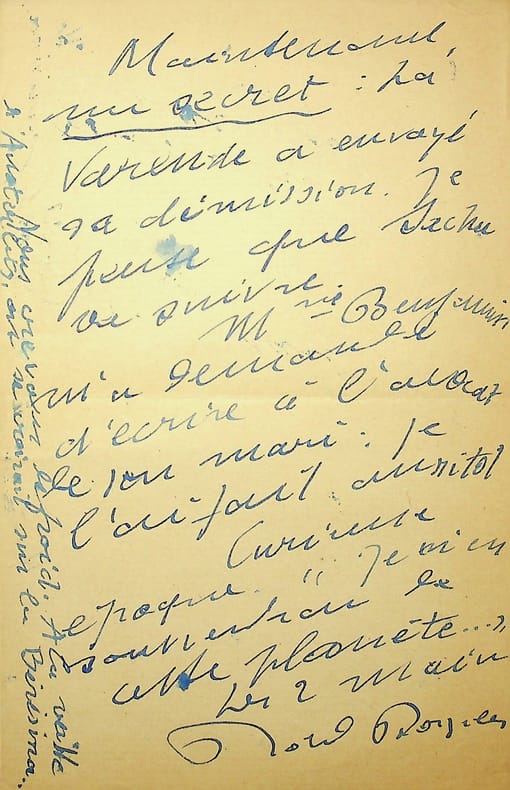 Maintenant,
un secret : La
Varende a envoyé
sa démission. Je
pense que Sacha
va suivre.
Mme Benjamin
m'a demandé
d'écrire à l'avocat
de son mari : je
l'ai fait aussitôt
Curieuse
époque. " Je m'en
souviendrai de
cette planète... "
Les 2 mains
Nous crevons de froid. A la veille
d'Austerlitz, on se croirait sur la Bérésina..